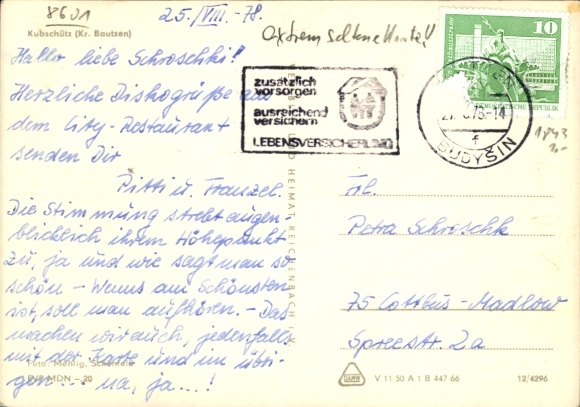 8601
25./VIII.-78.
extrem seltene Karte!!
Kubschütz (Kr. Bautzen)
Hallo liebe Schroschki!
Herzliche Diskogrüße aus
dem City-Restaurant
senden Dir
Pitti u. Franzel.
Die Stimmung strebt augen-
blicklich ihrem Höhepunkt
zu, ja und wie sagt man so
schön - Wenns am Schönsten
ist, soll man aufhören. - Das
machen wir auch, jedenfalls
mit der Karte und im übri-
gen... na, ja...!
Foto: Mehlig, Schönfels
EVP MDN -,20
zusätzlich
vorsorgen
ausreichend
versichern
LEBENSVERSICHERUNG
10
DEMOKRATISCHE REPUBLIK
BUDYŠIN
f
1843
UND HEIMAT REICHENBACH
Frl.
Petra Schroschk
75 Cottbus-Madlow
Spreestr. 2a
V 11 50 A 1 B 447 66
12/4296